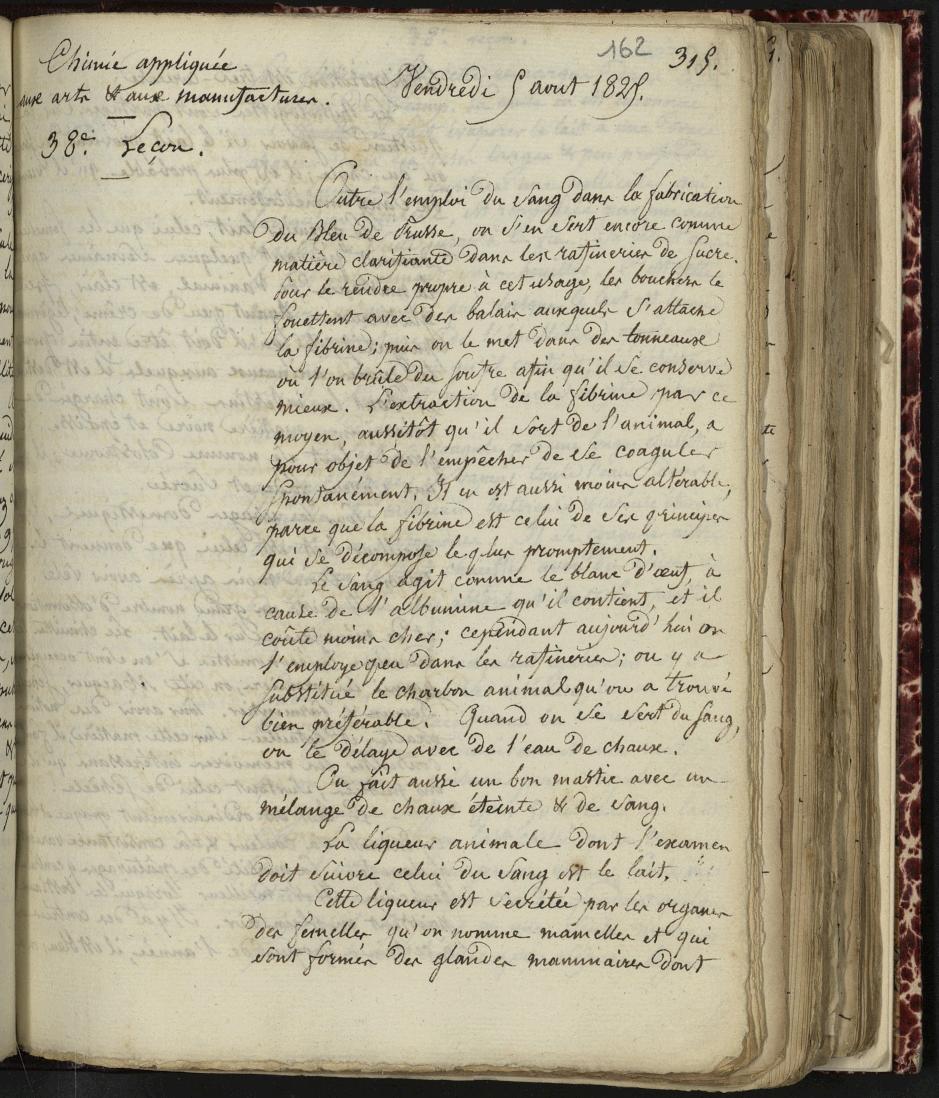 162
315.
Chimie appliquée
aux arts & aux manufactures.
Vendredi 5 aout 1825.
38e. Leçon.
Outre l'emploi du sang dans la fabrication
du Bleu de Prusse, on s'en sert encore comme
matière clarifiante dans les rafineries de sucre.
Pour le rendre propre à cet usage, les bouchers le
fouettent avec des balais auxquels s'attache
la fibrine; puis on le met dans des tonneaux
où l'on brûle du soufre afin qu'il se conserve
mieux. L'extraction de la fibrine par ce
moyen, aussitôt qu'il sort de l'animal, a
pour objet de l'empêcher de se coaguler
spontanément. Il en est aussi moins altérable,
parce que la fibrine est celui de ses principes
qui se décompose le plus promptement.
Le sang agit comme le blanc d'œuf, à
cause de l'albumine qu'il contient, et il
coûte moins cher; cependant aujourd'hui on
l'employe peu dans les rafineries; on y a
substitué le charbon animal qu'on a trouvé
bien préférable. Quand on se sert du sang,
on le délaye avec de l'eau de chaux.
On fait aussi un bon mastic avec un
mélange de chaux éteinte & de sang.
La liqueur animale dont l'examen
doit suivre celui du sang est le lait.
Cette liqueur est secrétée par les organes
des femelles qu'on nomme mamelles et qui
sont formés des glandes mammaires dont